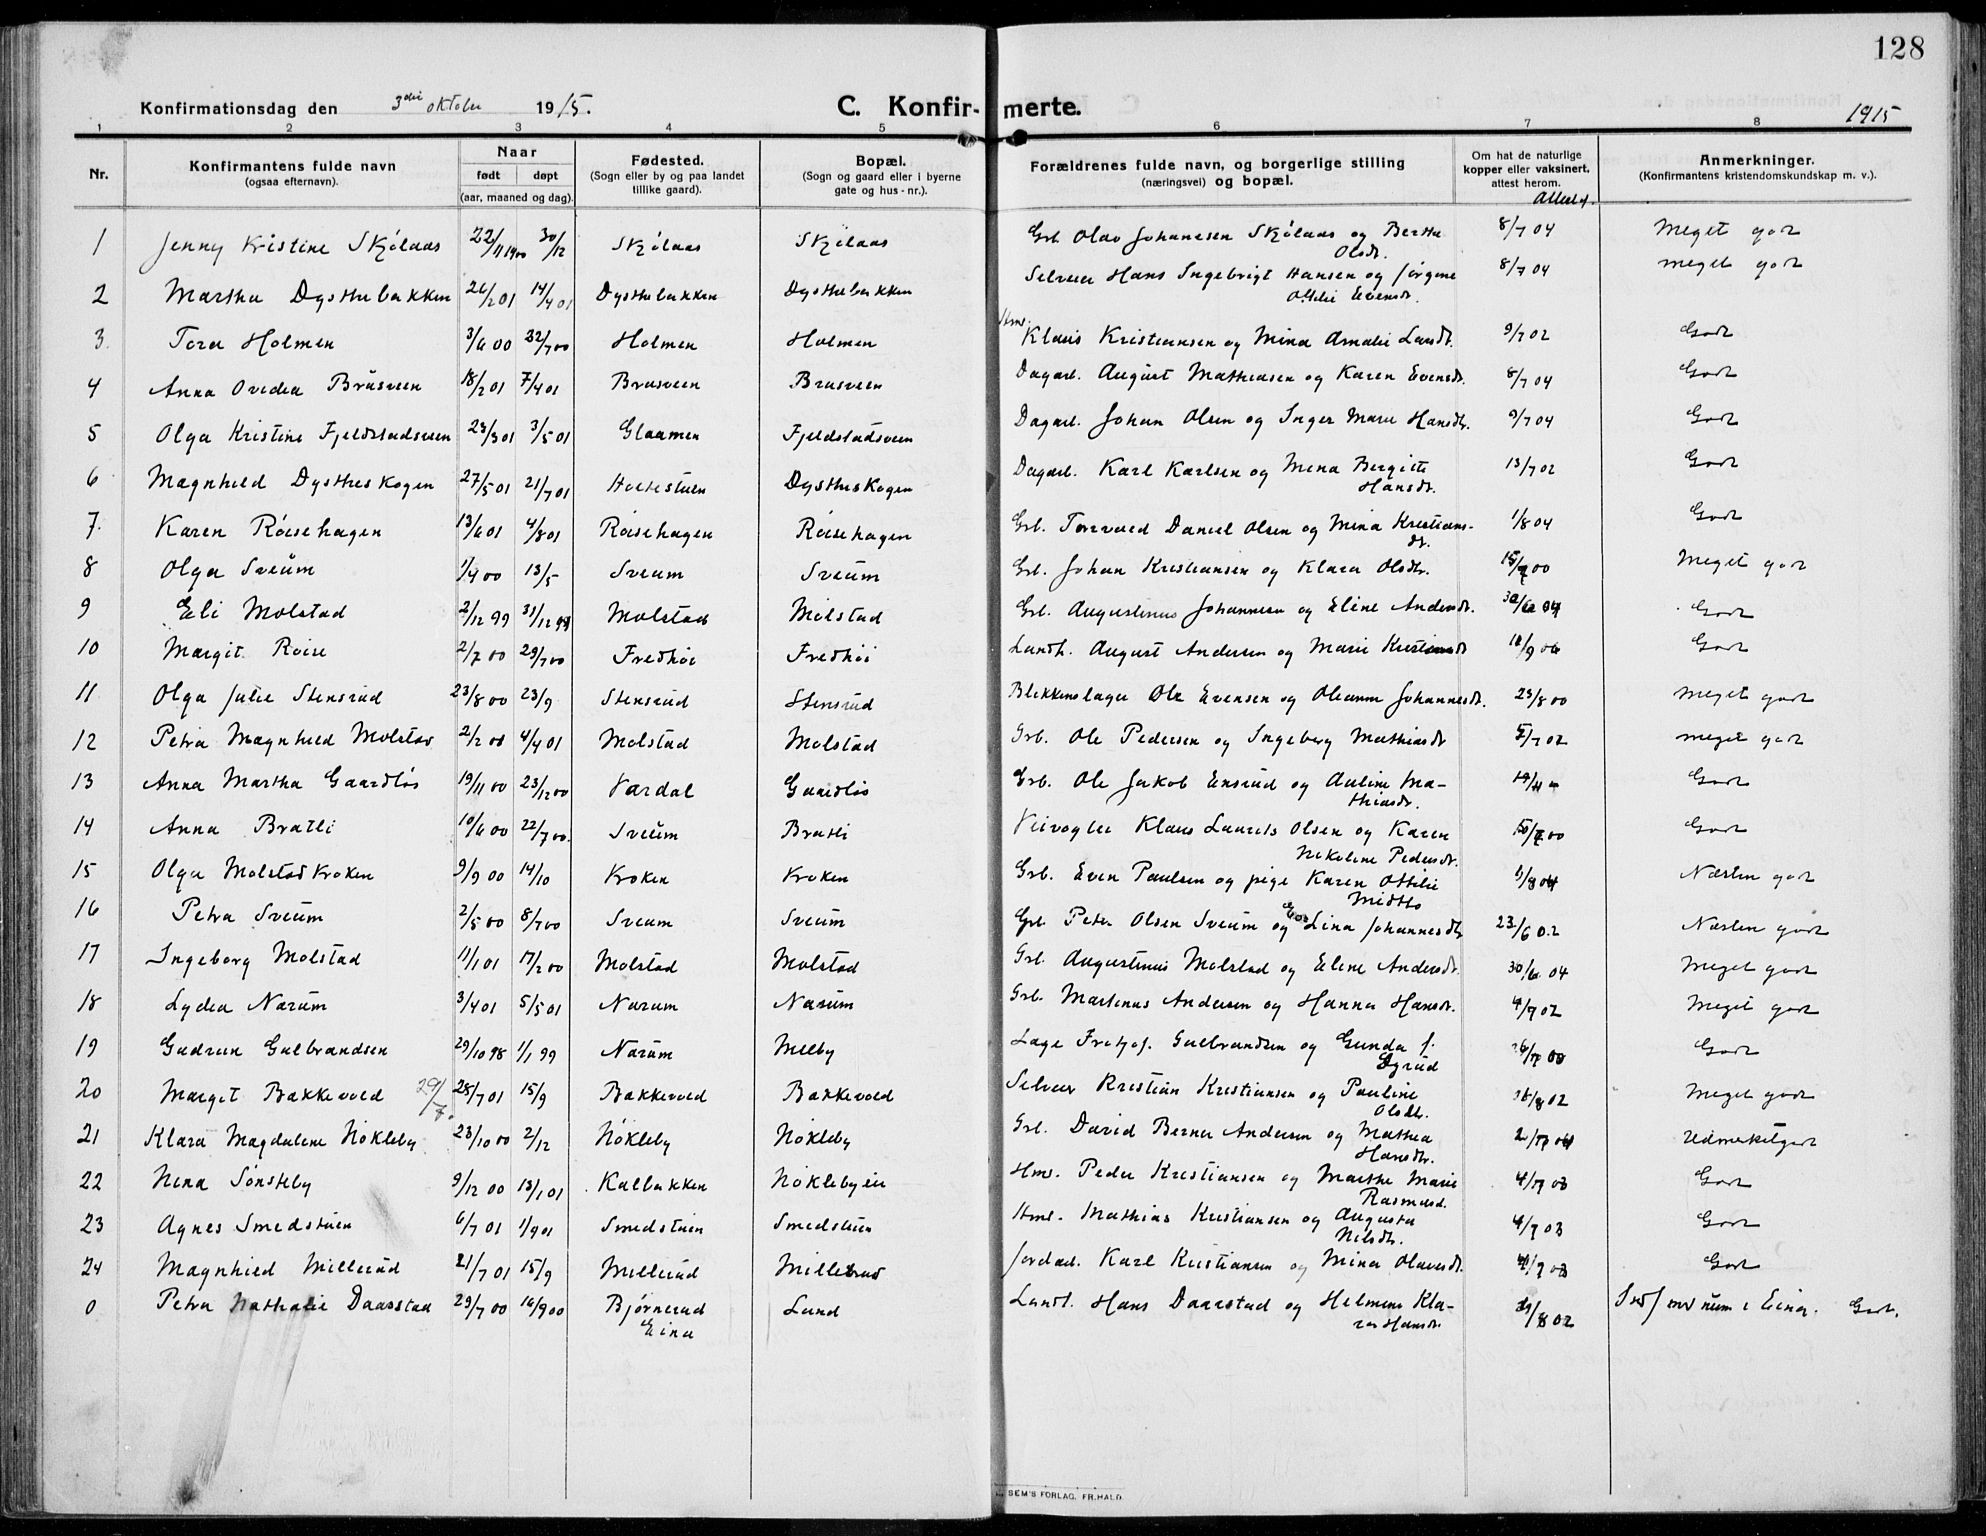 128
Konfirmationsdag den 3die oktober 1915. C. Konfir-merte. 1915
1 2 3 4 5 6 7 8
Nr. Konfirmantens fulde navn (ogsaa efternavn). Naar født døpt (aar, maaned og dag). Fødested. (Sogn eller by og paa landet tillike gaard). Bopæl. (Sogn og gaard eller i byerne gate og hus-nr.). Forældrenes fulde navn, og borgerlige stilling (næringsvei) og bopæl. Om hat de naturlige kopper eller vaksinert, attest herom. Anmerkninger. (Konfirmantens kristendomskundskap m. v.).
Attest af.
1 Jenny Kristine Skjølaas 22/11 1900 30/12 Skjølaas Skjølaas Grb. Olav Johannesen Skjølaas og Bertha Olsdt. 8/7 04 Meget godt
2 Martha Dysthebakken 26/2 01 14/4 01 Dysthebakken Dysthebakken Selveier Hans Ingebrigt Hansen og Jørgine Ottilie Evensdt. 8/7 04 Meget godt
3. Tora Holmen 3/6 00 22/7 00 Holmen Holmen Hms. Klaus Kristiansen og Mina Amalie Larsdt. 9/7 02 Godt
4 Anna Ovedia Brusveen 18/2 01 7/4 01 Brusveen Brusveen Dagarb. August Mathiasen og Karen Evensdt. 8/7 04 Godt
5 Olga Kristine Fjeldstadsveen 23/3 01 3/5 01 Glaamen Fjeldstadsveen Dagarb. Johan Olsen og Inger Marie Hansdt. 9/7 04 Godt
6 Magnhild Dystheskogen 27/5 01 21/7 01 Dystheskogen Dagarb. Karl Karlsen og Mina Bergitte Hansdt. 13/7 02 Godt
7. Karen Røisehagen 13/6 01 4/8 01 Røisehagen Røisehagen Grb. Torvald Daniel Olsen og Mina Kristiansdt. 1/8 04 Godt
8 Olga Sveum 1/4 00 13/5 Sveum Sveum Grb. Johan Kristiansen og Klara Olsdt. Meget godt
9 Eli Molstad 2/12 99 31/12 99 Molstad Molstad Grb. Augustinus Johannesen og Eline Andersdt. 30/6 04 Godt
10 Margit Røise 2/7 00 29/7 00 Fredhøi Fredhøi Landh. August Andersen og Marie Kristiansdt 10/9 06 Godt
11 Olga Julie Stensrud 23/8 00 23/9 Stensrud Stensrud Blikkenslager Ole Evensen og Oleanne Johannesdt. 23/8 00 Meget godt
12 Petra Magnhild Molstad 2/2 01 4/4 01 Molstad Molstad Grb. Ole Pedersen og Ingeborg Mathiasdt 5/7 02 meget godt
13 Anna Martha Gaardløs 19/11 00 23/12 00 Vardal Gaardløs Grb. Ole Jakob Ensrud og Auline Mathiasdt. Godt
14 Anna Bratli 10/6 00 22/7 00. Sveum Bratli Veivogter Klaus Laurits Olsen og Karen Nikoline Pedersdt. Godt
15 Olga Molstadkroken 9/9 00 14/10 Kroken Kroken Grb. Even Paulsen og pige Karen Ottilie Midtlo Næsten godt
16 Petra Sveum 2/5 00 8/7 00 Sveum Sveum Grb. Peter Olsen Sveum og Lina Johannesdt. 23/6 02 Næsten godt
17 Ingeborg Molstad 11/1 01 17/2 00 Molstad Molstad Grb. Augustinus Molstad og Eline Andersdt. 30/6 04 Meget godt
18 Lydia Narum 3/4 01 5/5 01 Narum Narum Grb. Martinus Andersen og Hanna Hansdt. 4/7 02 Meget godt
19 Gudrun Gulbrandsen 29/10 98 1/1 99 Narum Melby Læge Fretjof. Gulbrandsen og Gunda f. Godt
20 Margit Bakkevold 29/7. 28/7 01 15/9 Bakkevold Bakkevold Selveier Kristian Kristiansen og Pauline Olsdt. Meget godt
21 Klara Magdalene Nøkleby 23/10 00 2/12 Nøkleby Nøkleby Grb. David Berner Andersen og Mathea Hansdt. Udmerketgodt
22 Nina Sønsteby 9/12 00 13/1 01 Kalbakken Nøklebyeie Hms. Peder Kristiansen og Marthe Marie Rasmusd. 4/7 03 Godt
23 Agnes Smedstuen 6/7 01 1/9 01 Smedstuen Smedstuen Hms. Mathias Kristiansen og Augusta Nilsdt. 4/7 03 Godt
24 Magnhild Millerud 21/7 01 15/9 Millerud Millerud Jordarb. Karl Kristiansen og Mina Olavesdt. Godt
0 Petra Nathalie Daarstad 29/7 00 16/9 00 Bjørnerud Eina Lund Landh. Hans Daarstad og Helmine Klara Hansdt. Indf. med num i Eina. Godt.
SEM'S FORLAG. FR.HALD